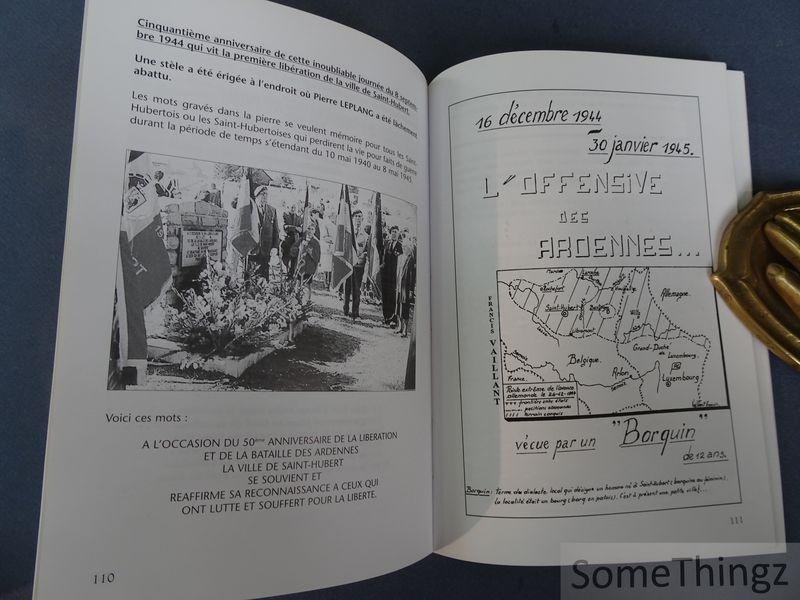 Cinquantième anniversaire de cette inoubliable journée du 8 septem-
bre 1944 qui vit la première libération de la ville de Saint-Hubert.
Une stèle a été érigée à l'endroit où Pierre LEPLANG a été lâchement
abattu.
Les mots gravés dans la pierre se veulent mémoire pour tous les Saint-
Hubertois ou les Saint-Hubertoises qui perdirent la vie pour faits de guerre
durant la période de temps s'étendant du 10 mai 1940 au 8 mai 1945.
Voici ces mots :
A L'OCCASION DU 50ème ANNIVERSAIRE DE LA LIBERATION
ET DE LA BATAILLE DES ARDENNES
LA VILLE DE SAINT-HUBERT
SE SOUVIENT ET
REAFFIRME SA RECONNAISSANCE A CEUX QUI
ONT LUTTE ET SOUFFERT POUR LA LIBERTE.
110
16 décembre 1944
30 janvier 1945.
L'OFFENSIVE
DES
ARDENNES...
FRANCIS VAILLANT
Rochefort
Allemagne.
Saint-Hubert
Belgique.
Grand-Duché
de Luxembourg.
France.
Arlon
Luxembourg
Pointe extrême de l'avance
allemande le 26-12-1944
frontière entre états
positions allemandes
terrain conquis
vécue par un "Borquin"
de 12 ans.
Borquin : Terme de dialecte local qui désigne un homme né à Saint-Hubert (borquine au féminin).
La localité était un bourg (borq en patois). C'est à présent une petite ville!...
111
SomeThingz